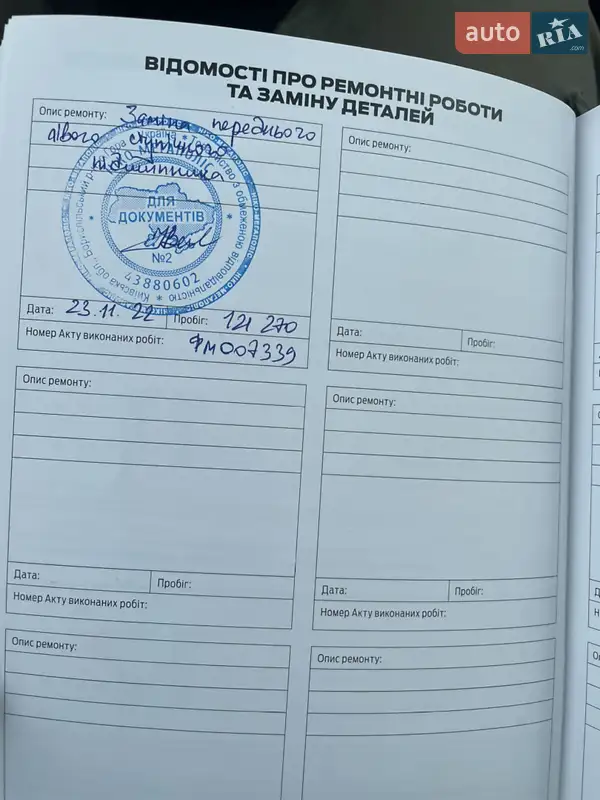 auto RIA .com
ВІДОМОСТІ ПРО РЕМОНТНІ РОБОТИ
ТА ЗАМІНУ ДЕТАЛЕЙ
Опис ремонту: Заміна переднього
лівого ступичного
підшипника
ДЛЯ
ДОКУМЕНТІВ
№2
43880602
Дата: 23.11.22 Пробіг: 121 270
Номер Акту виконаних робіт: ФМ007339
Опис ремонту:
Дата: Пробіг:
Номер Акту виконаних робіт:
Опис ремонту:
Дата: Пробіг:
Номер Акту виконаних робіт:
Опис ремонту:
Дата: Пробіг:
Номер Акту виконаних робіт:
Опис ремонту:
Опис ремонту: